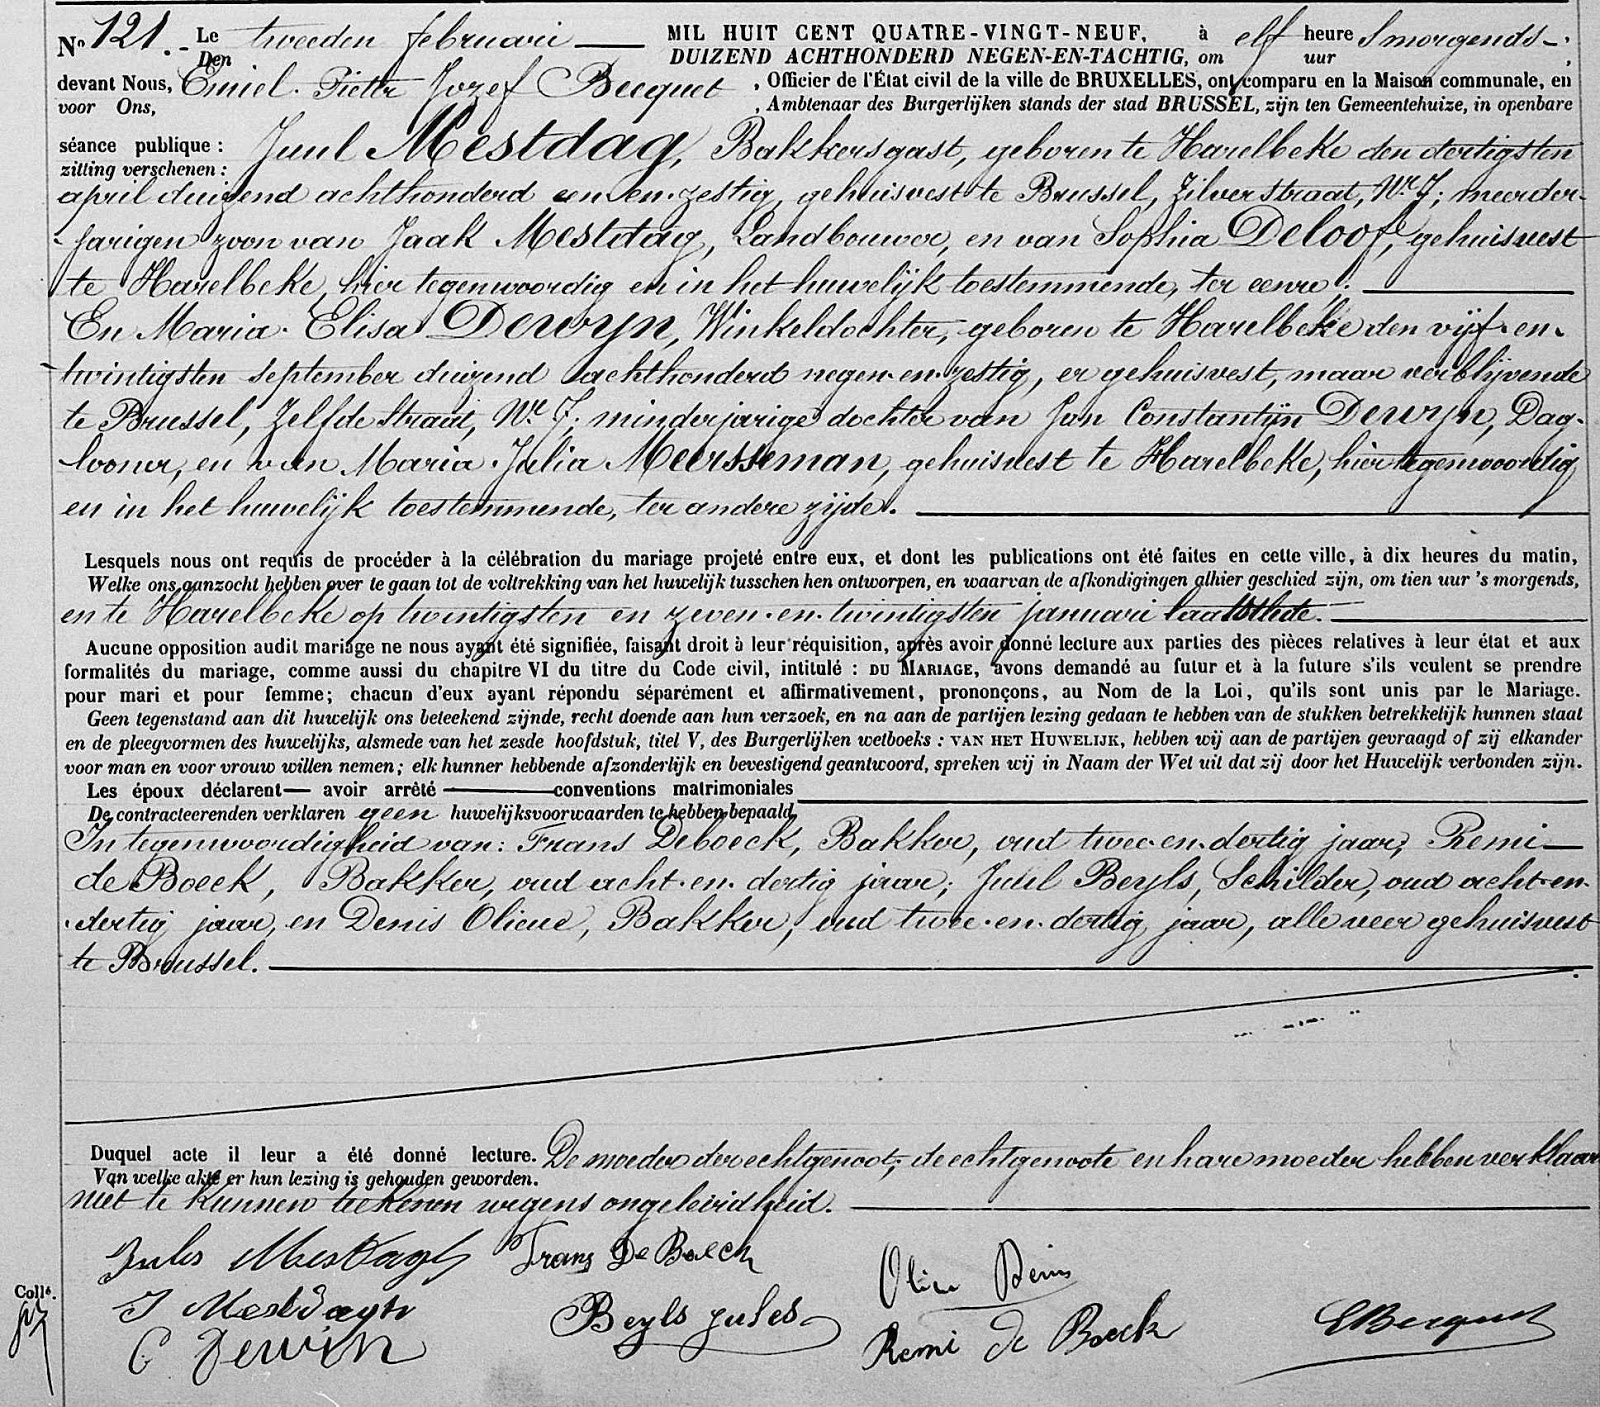 No 121. Le tweeden februari MIL HUIT CENT QUATRE-VINGT-NEUF, à elf heure Smorgends
Den DUIZEND ACHTHONDERD NEGEN-EN-TACHTIG, om uur
devant Nous, Emiel Pieter Jozef Becquet, Officier de l'État civil de la ville de BRUXELLES, ont comparu en la Maison communale, en
voor Ons, , Ambtenaar des Burgerlijken stands der stad BRUSSEL, zijn ten Gemeentehuize, in openbare
séance publique : Juul Mestdag, Bakkersgast, geboren te Harelbeke den dertigsten
zitting verschenen :
april duizend achthonderd een en zestig, gehuisvest te Brussel, Zilverstraat, Nr. 7; meerder-
jarigen zoon van Jaak Mestdag, Landbouwer, en van Sophia Deloof, gehuisvest
te Harelbeke, hier tegenwoordig en in het huwelijk toestemmende, ter eenre;
En Maria Elisa Dewyn, Winkeldochter, geboren te Harelbeke den vijf en
twintigsten september duizend achthonderd negen en zestig, er gehuisvest, maar verblijvende
te Brussel, Zelfde Straat, Nr. 7; minderjarige dochter van Jan Constantijn Dewyn, Dag-
looner, en van Maria Julia Meersseman, gehuisvest te Harelbeke, hier tegenwoordig
en in het huwelijk toestemmende, ter andere zijde.
Lesquels nous ont requis de procéder à la célébration du mariage projeté entre eux, et dont les publications ont été faites en cette ville, à dix heures du matin,
Welke ons aanzocht hebben over te gaan tot de voltrekking van het huwelijk tusschen hen ontworpen, en waarvan de afkondigingen alhier geschied zijn, om tien uur 's morgends,
en te Harelbeke op twintigsten en zeven en twintigsten januari laatstlede.
Aucune opposition audit mariage ne nous ayant été signifiée, faisant droit à leur réquisition, après avoir donné lecture aux parties des pièces relatives à leur état et aux
formalités du mariage, comme aussi du chapitre VI du titre du Code civil, intitulé : DU MARIAGE, avons demandé au futur et à la future s'ils veulent se prendre
pour mari et pour femme; chacun d'eux ayant répondu séparément et affirmativement, prononçons, au Nom de la Loi, qu'ils sont unis par le Mariage.
Geen tegenstand aan dit huwelijk ons beteekend zijnde, recht doende aan hun verzoek, en na aan de partijen lezing gedaan te hebben van de stukken betrekkelijk hunnen staat
en de pleegvormen des huwelijks, alsmede van het zesde hoofdstuk, titel V, des Burgerlijken wetboeks : VAN HET HUWELIJK, hebben wij aan de partijen gevraagd of zij elkander
voor man en voor vrouw willen nemen; elk hunner hebbende afzonderlijk en bevestigend geantwoord, spreken wij in Naam der Wet uit dat zij door het Huwelijk verbonden zijn.
Les époux déclarent avoir arrêté conventions matrimoniales
De contracteerenden verklaren geen huwelijksvoorwaarden te hebben bepaald,
In tegenwoordigheid van: Frans Deboeck, Bakker, oud twee en dertig jaar; Remi
de Boeck, Bakker, oud acht en dertig jaar; Juul Beyls, Schilder, oud acht en
dertig jaar, en Denis Olieue, Bakker, oud twee en dertig jaar, alle veer gehuisvest
te Brussel.
Duquel acte il leur a été donné lecture. De moeder der echtgenoot, de echtgenoote en hare moeder hebben verklaar
Van welke akte er hun lezing is gehouden geworden.
niet te kunnen teekenen wegens ongeleerdheid.
Jules Mestdagh Frans De Boeck Denis
Collé. J Mestdagh Beyls jules EBecquet
C Dewin Remi de Boeck